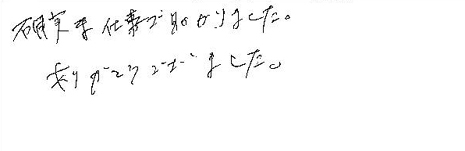 確実な仕事で助かりました。
ありがとうございました。